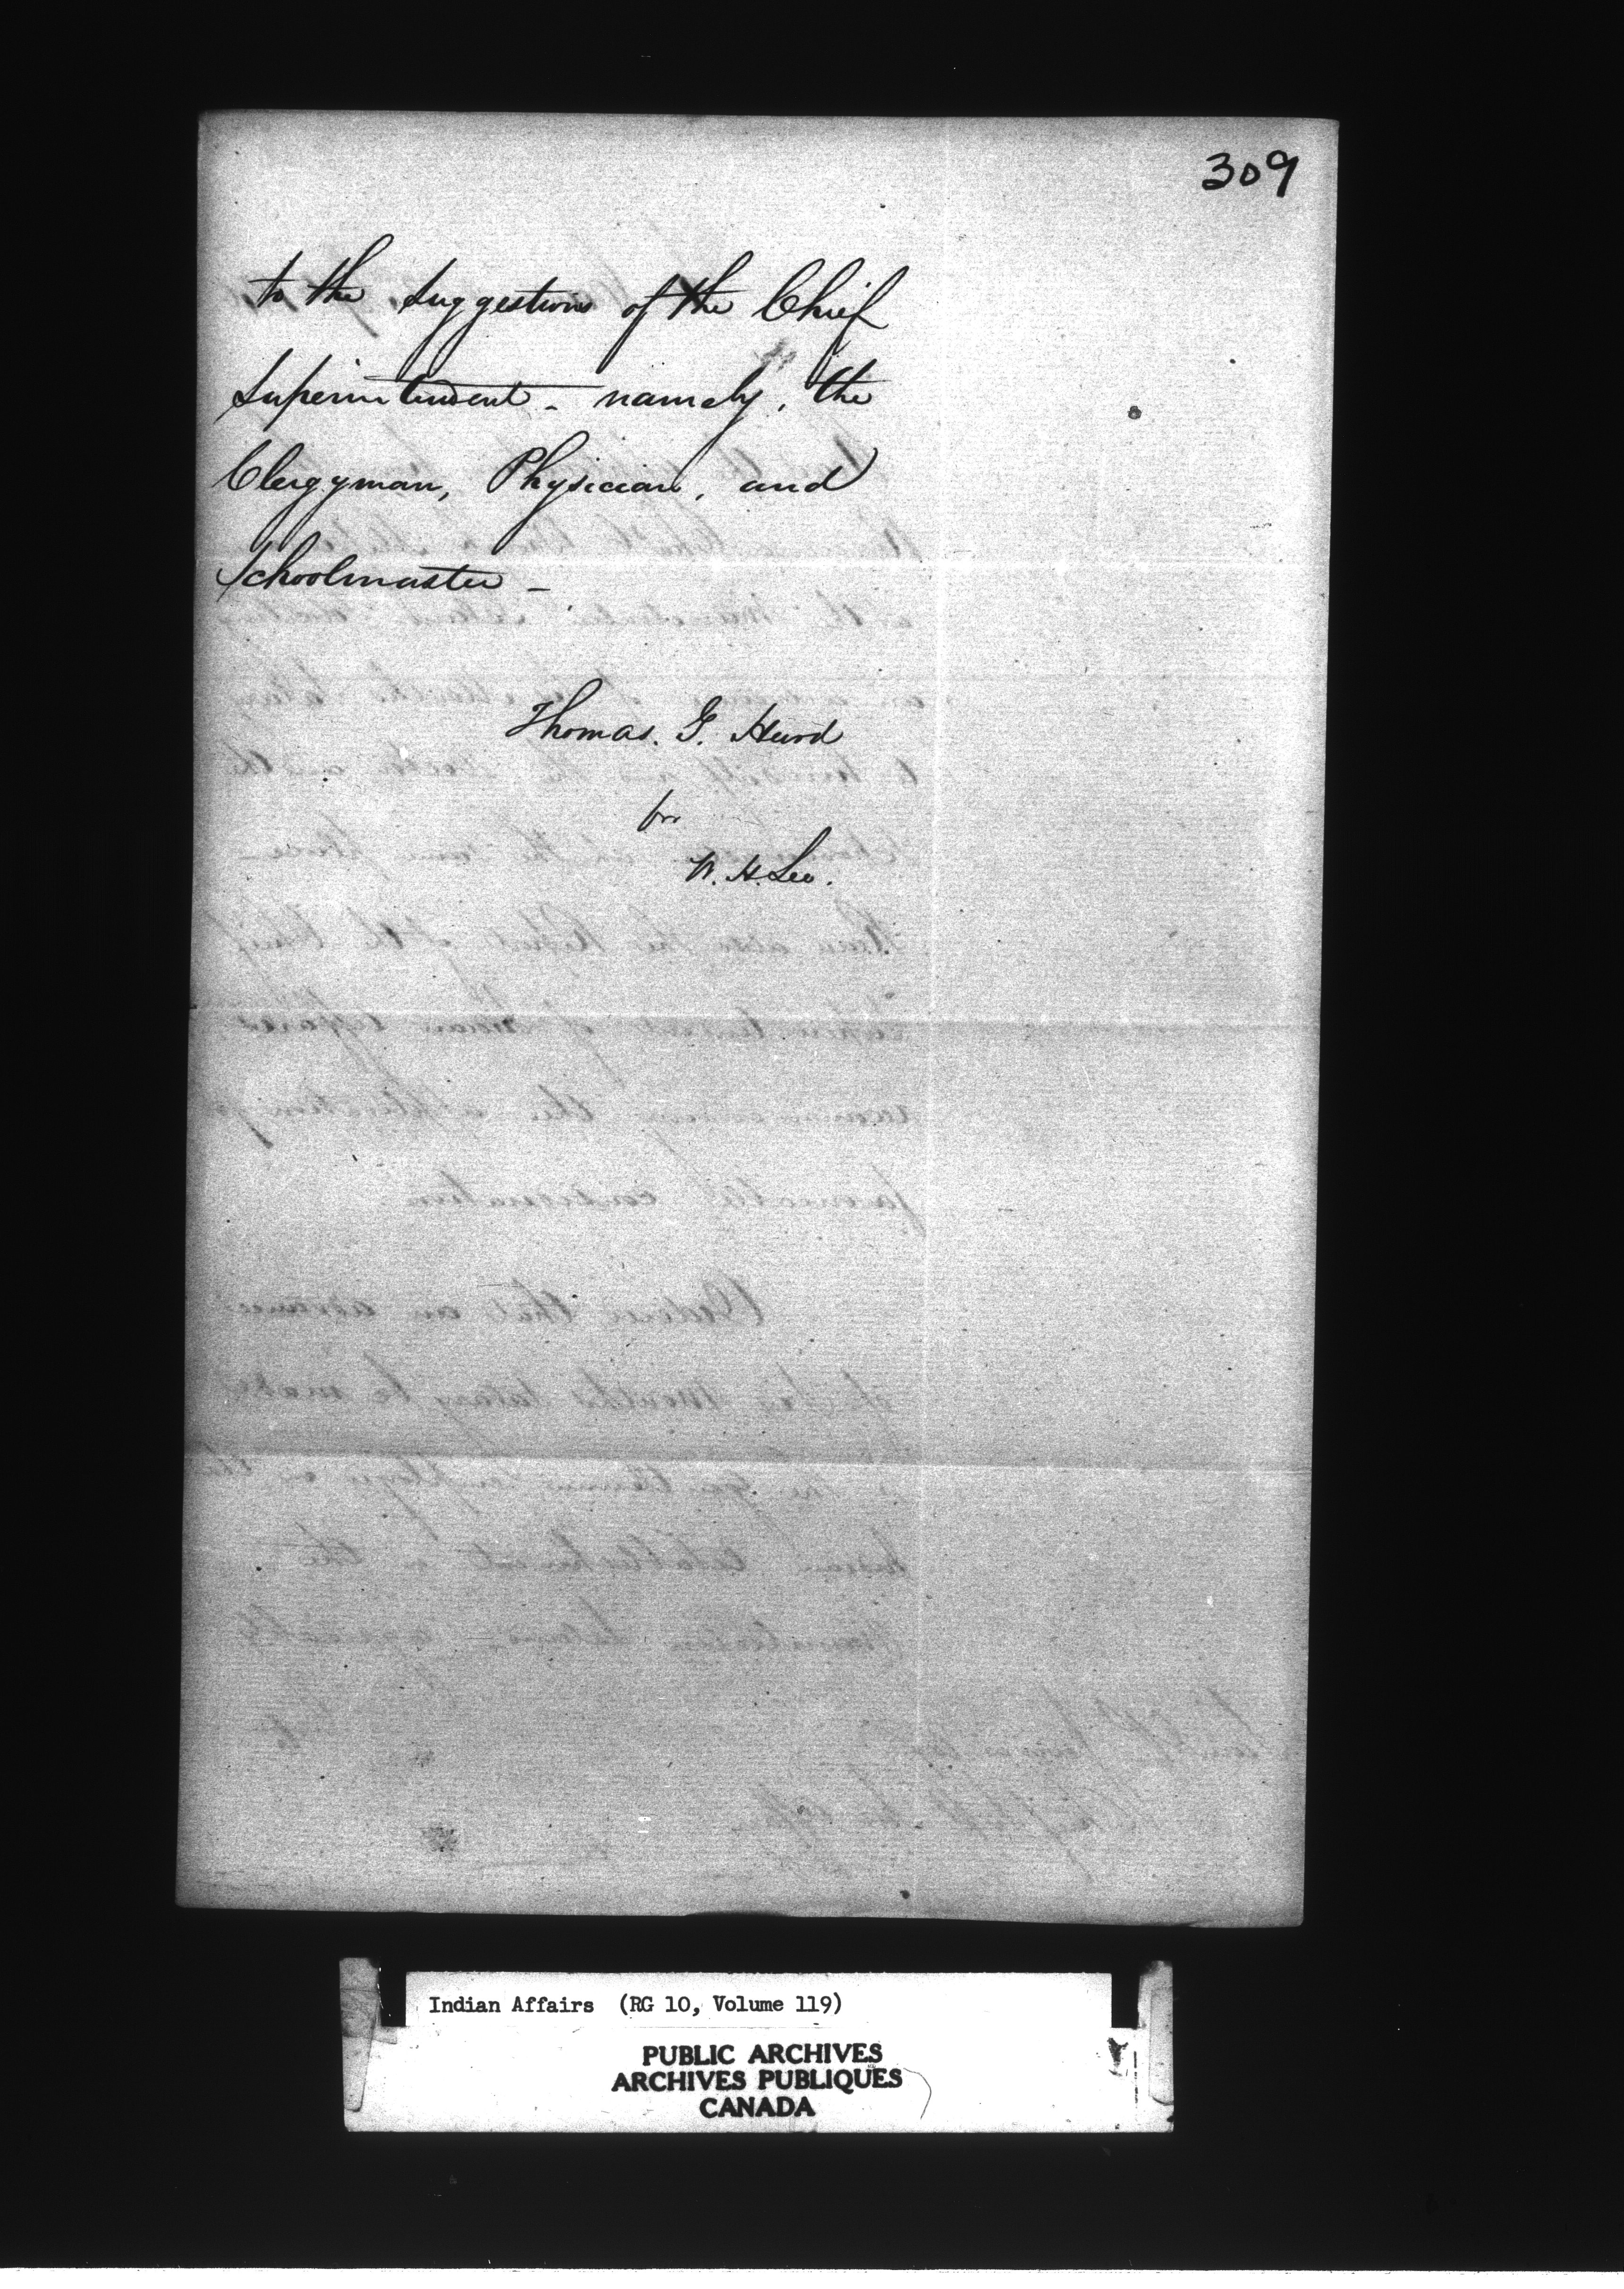 309
to the Suggestions of the Chief
Superintendent - namely, the
Clergyman, Physician, and
Schoolmaster -
Thomas. G. Hurd
for
W. H. Lee.
Indian Affairs (RG 10, Volume 119)
PUBLIC ARCHIVES
ARCHIVES PUBLIQUES
CANADA